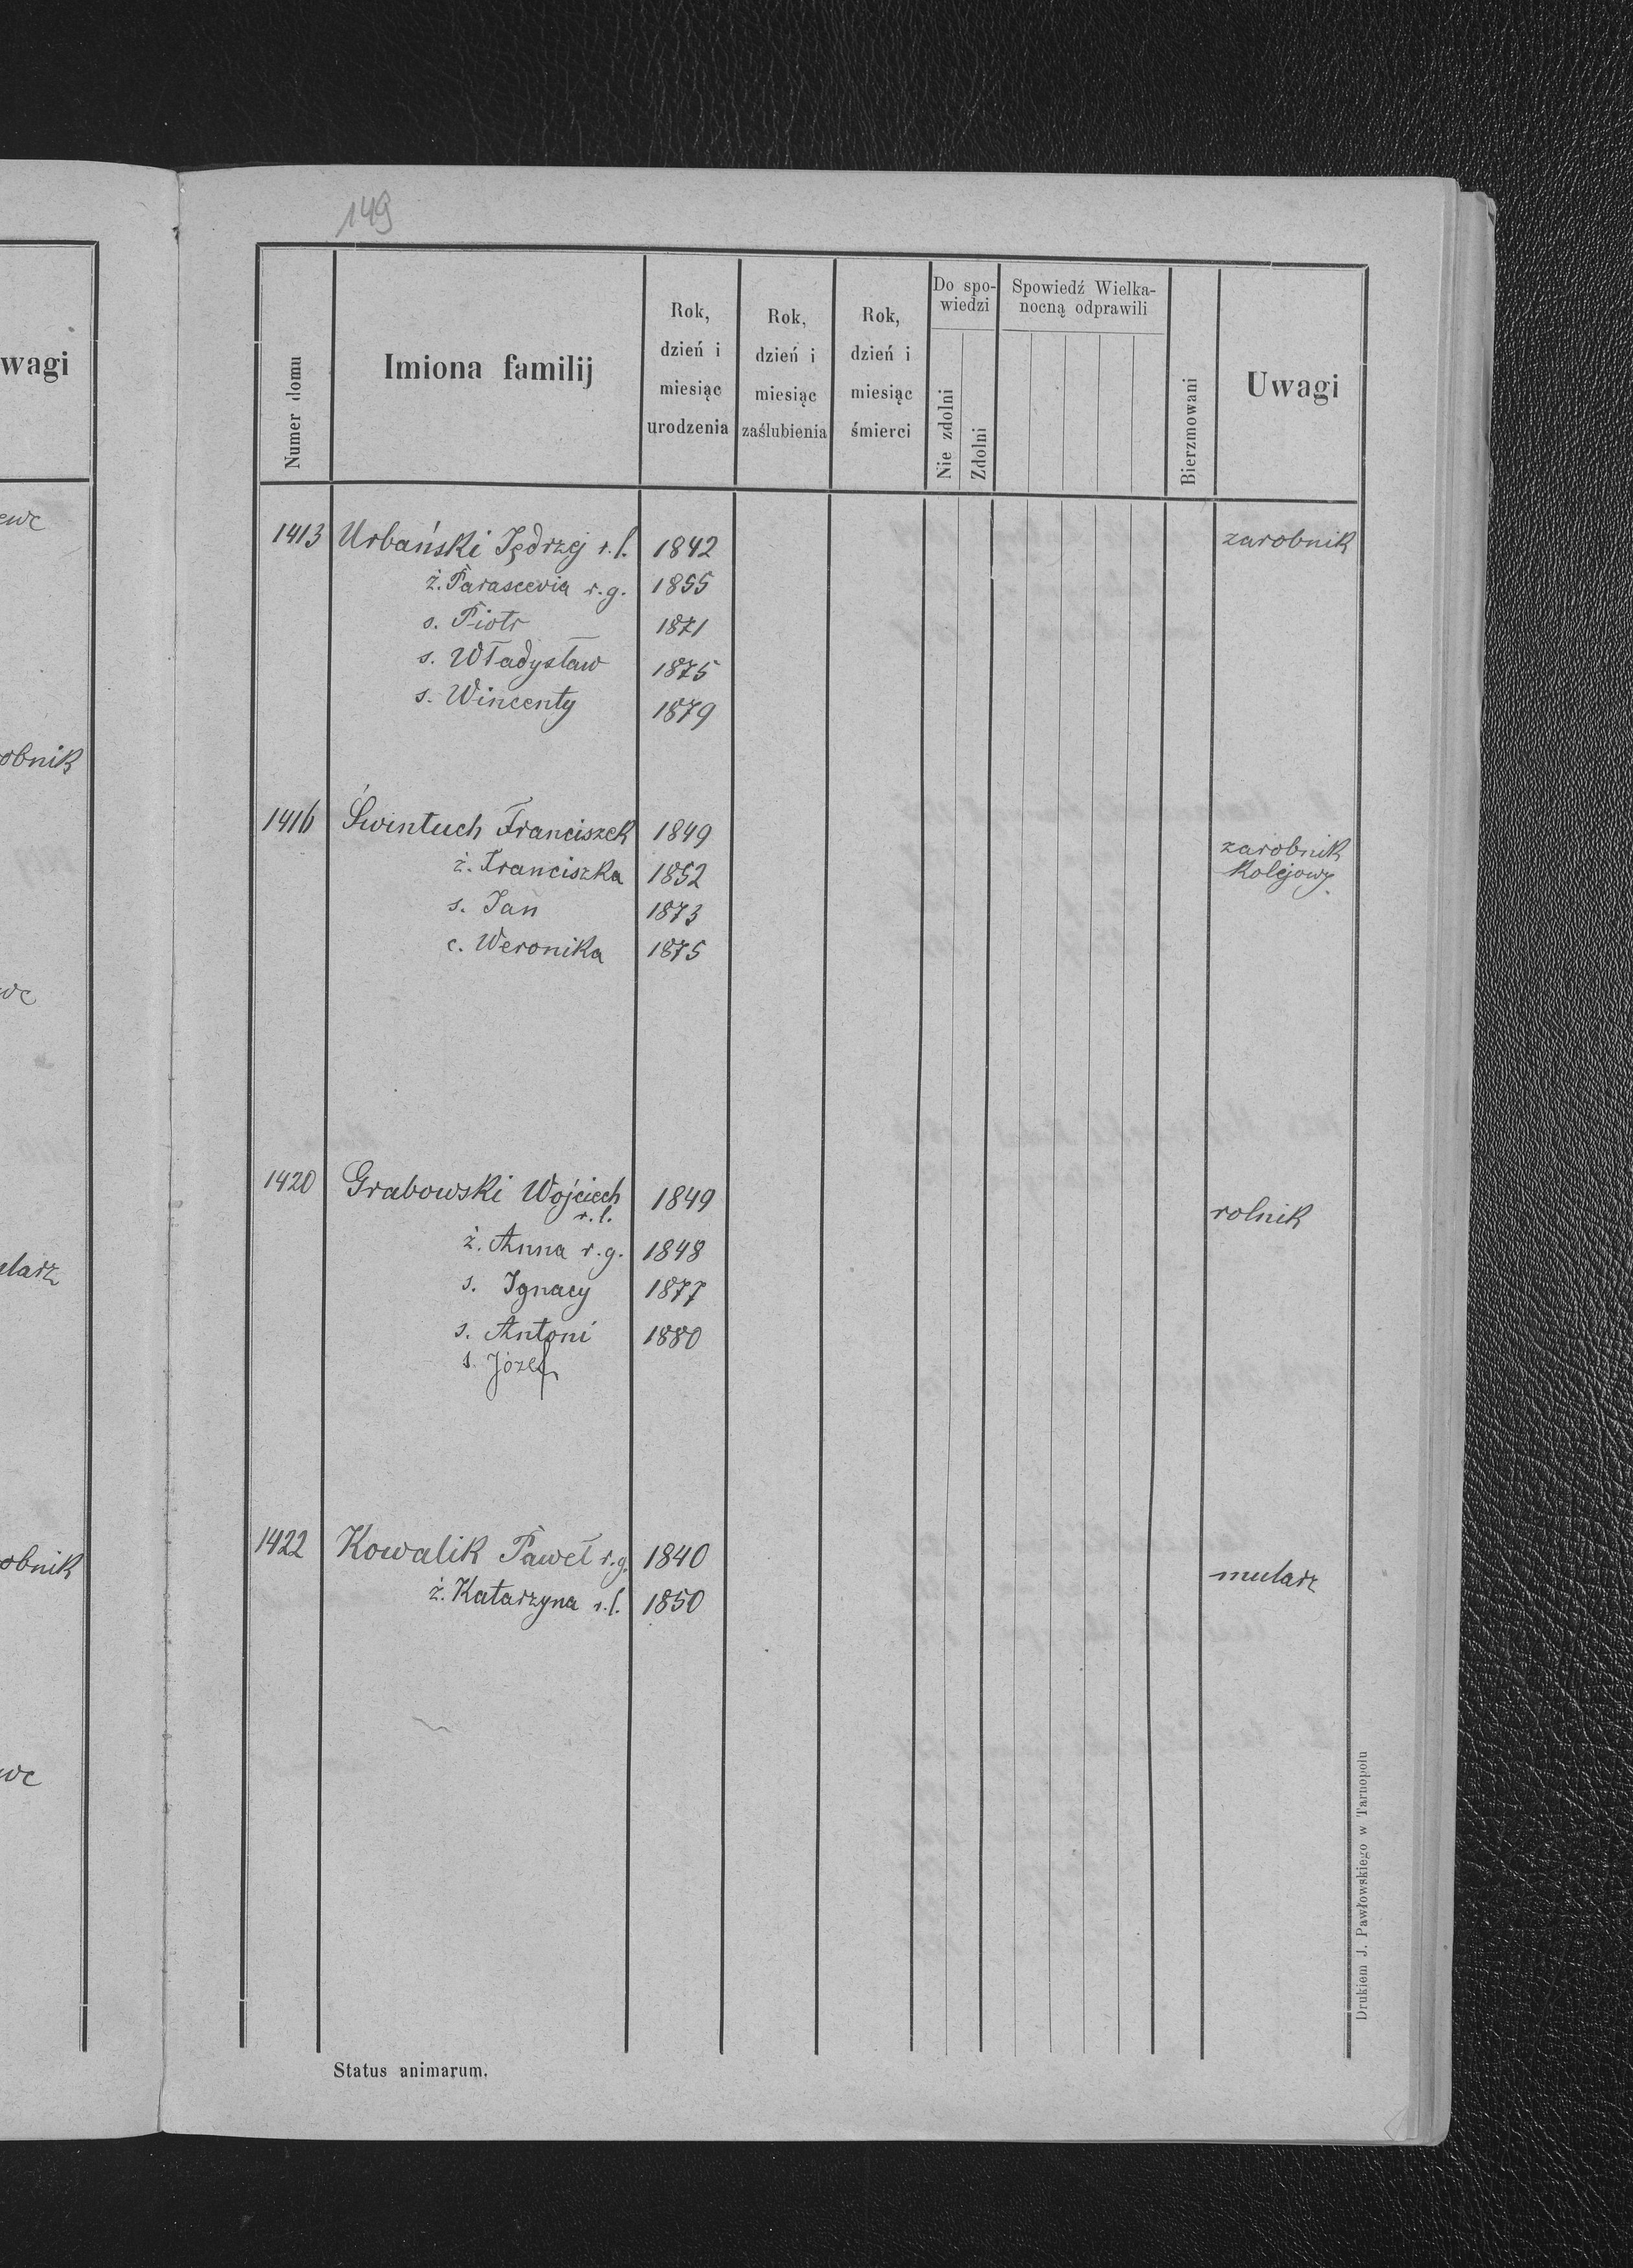 149
wagi
Numer domu
Imiona familij
Rok, dzień i miesiąc urodzenia
Rok, dzień i miesiąc zaślubienia
Rok, dzień i miesiąc śmierci
Do spo-
wiedzi
Nie zdolni
Zdolni
Spowiedź Wielka-
nocną odprawili
Bierzmowani
Uwagi
1413 Urbański Jędrzej r.l. 1842 zarobnik
ż. Parascevia r.g. 1855
s. Piotr 1871
s. Władysław 1875
s. Wincenty 1879
obnik
1416 Świntuch Franciszek 1849 zarobnik
ż. Franciszka 1852 Kolejowy
s. Jan 1873
c. Weronika 1875
1420 Grabowski Wojciech 1849 rolnik
r.l.
ż. Anna r.g. 1848
s. Ignacy 1877
s. Antoni 1880
s. Józef
ularz
1422 Kowalik Paweł r.g. 1840 mularz
ż. Katarzyna r.l. 1850
obnik
Status animarum.
Drukiem J. Pawłowskiego w Tarnopolu